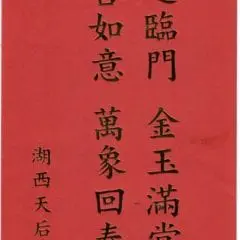 臨門 金玉滿堂
如意 萬象回春
湖西天后